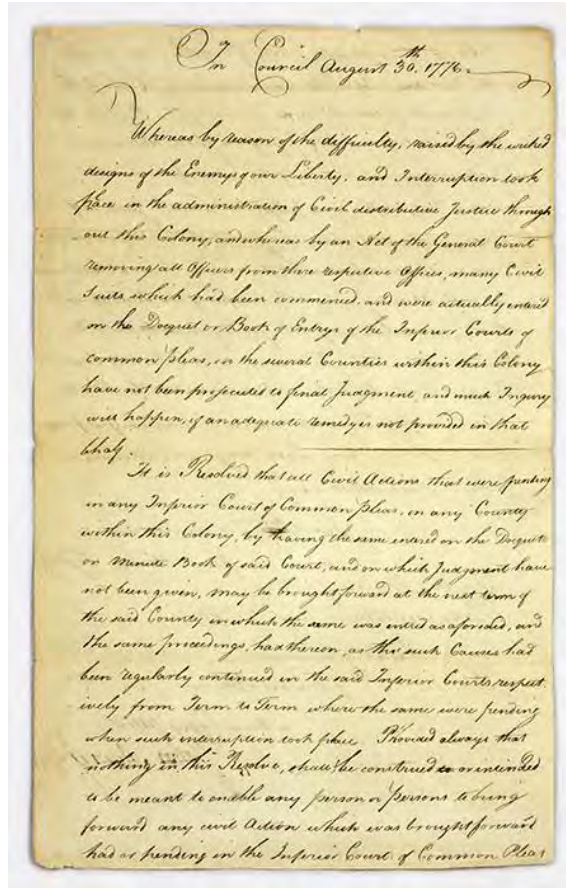 In Council August 30th. 1776.
Whereas by reason of the difficulty, raised by the wicked
designs of the Enemys of our Liberty, and Interruption took
place in the administration of Civil distributive Justice through
out this Colony, and whereas by an Act of the General Court
removing all Officers from there respective Offices, many Civil
Suits, which had been commenced, and were actually entered
on the Docquet or Book of Entrys of the Inferior Courts of
common pleas, in the several Counties within this Colony
have not been prosecuted to final Judgment, and much Injury
will happen, if an adequate remedy is not provided in that
bhalf.
It is Resolved that all Civil Actions that were pending
in any Inferior Court of Common pleas, in any County
within this Colony, by having the same entered on the Docquet
or Minute Book of said Court, and on which Judgment have
not been given, may be brought forward at the next term of
the said County in which the same was entred as aforesaid, and
the same proceedings, had thereon, as tho' such Causes had
been regularly continued in the said Inferior Courts respect
ively from Term to Term where the same were pending
when such interruption took place Provided always that
nothing in this Resolve, shall be construed or intended
to be meant to enable any person or persons to bring
forward any civil Action which was brought forward
had or pending in the Inferior Court of Common Pleas